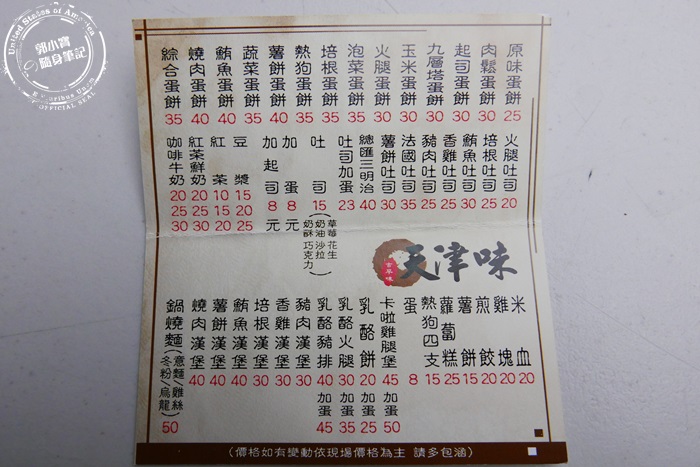 United States of America
郭小寶
隨身筆記
E Pluribus Unum
OFFICIAL SEAL
原味蛋餅 25
肉鬆蛋餅 30
起司蛋餅 30
九層塔蛋餅 30
玉米蛋餅 30
火腿蛋餅 30
泡菜蛋餅 35
培根蛋餅 35
熱狗蛋餅 35
薯餅蛋餅 40
蔬菜蛋餅 35
鮪魚蛋餅 40
燒肉蛋餅 40
綜合蛋餅 35
火腿吐司 20
培根吐司 25
鮪魚吐司 30
香雞吐司 25
豬肉吐司 25
法國吐司 35
薯餅吐司 30
總匯三明治 40
吐司加蛋 23
吐司 15
(草莓 花生
奶油 沙拉
奶酥 巧克力)
加蛋 8元
加起司 8元
豆漿 15 20 25
紅茶 10 15 20
紅茶鮮奶 20 25 30
咖啡牛奶 20 25 30
古早味
天津味
米血 20
雞塊 20
煎餃 20
薯餅 15
蘿蔔糕 25
熱狗四支 15
蛋 8
卡啦雞腿堡 45 加蛋 50
乳酪餅 20 加蛋 25
乳酪火腿 30 加蛋 35
乳酪豬排 40 加蛋 45
豬肉漢堡 30
香雞漢堡 30
培根漢堡 30
鮪魚漢堡 40
薯餅漢堡 40
燒肉漢堡 40
鍋燒麵(意麵/雞絲
冬粉/烏龍) 50
(價格如有變動依現場價格為主 請多包涵)